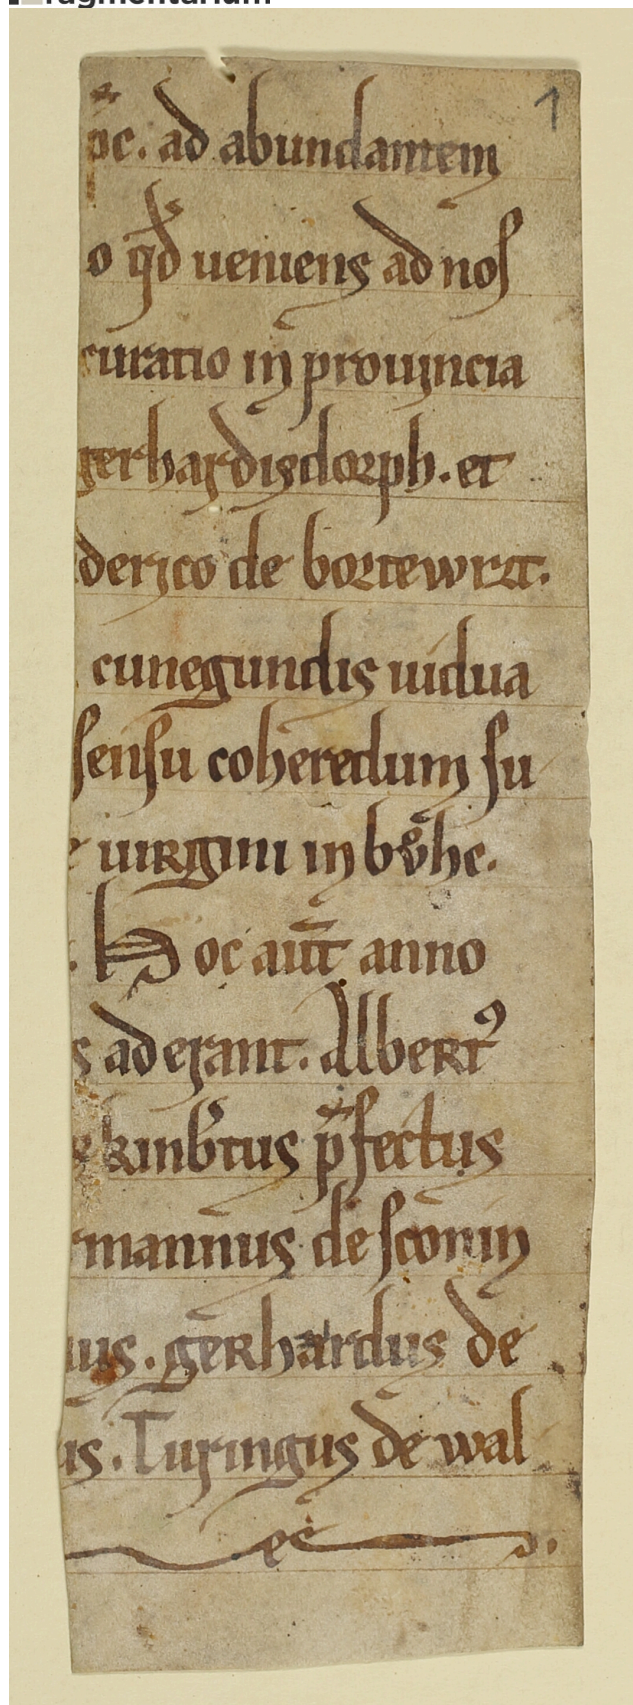 fragmentarium
1
oc. ad abundantem
o qd ueniens ad nos
curatio in prouincia
gerhardisdorph. et
derico de bortewrt.
cunegundis uidua
sensu coheredum su
uirgini in bůhc.
Hoc aut̄ anno
s aderant. Albertꝰ
kinb̄tus p̄fectus
mannus de sconin
us. gerhardus de
us. Turingus de wal